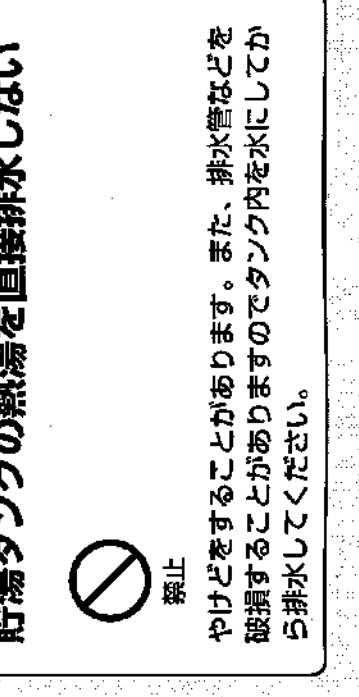 貯湯タンクの熱湯を直接排水しない
禁止
やけどをすることがあります。また、排水管などを
破損することがありますのでタンク内を水にしてか
ら排水してください。